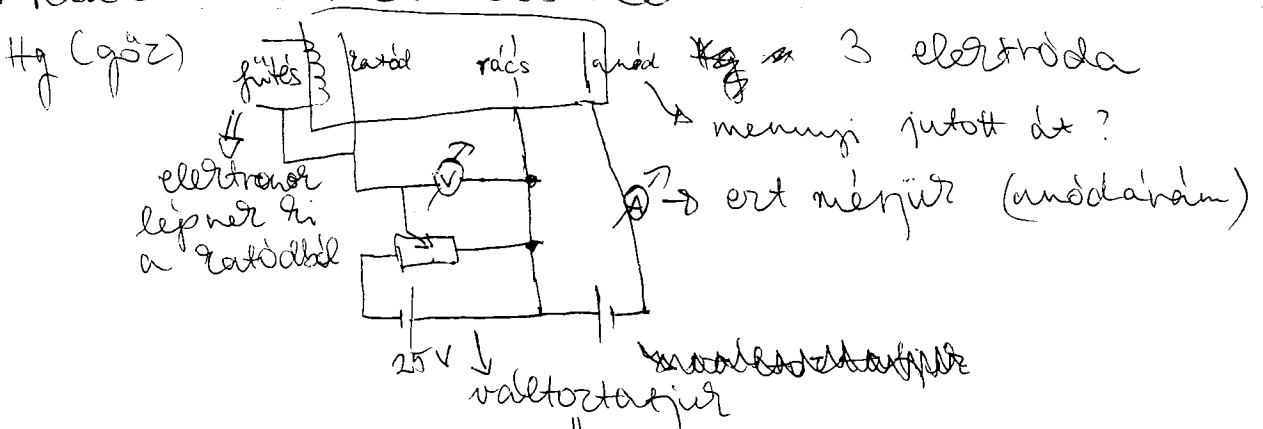 Hg (gőz) fűtés katód rács anód 3 elektróda
mennyi jutott át?
elektronok
lépnek ki
a katódból
V
A → ezt mérjük (anódáram)
25 V
változtatjuk